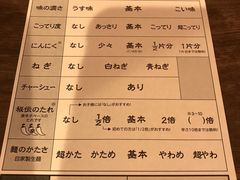 味の濃さ うす味 基本 こい味
こってり度 なし あっさり 基本 こってり 超こってり
にんにく なし 少々 基本 1/2片分 1片分
ねぎ なし 白ねぎ 青ねぎ
チャーシュー なし あり
秘伝のたれ なし 1/2倍 基本 2倍 ( )倍
麺のかたさ 超かた かため 基本 やわめ 超やわ
自家製生麺